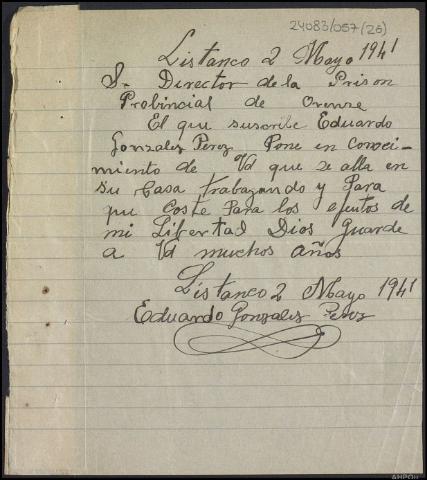 24083/057(26)
Listanco 2 Mayo 1941
S. Director de la Prison
Probincial de Orense
El que suscribe Eduardo
Gonzalez Perez Pone en Conoci-
miento de Vd que se alla en
su Casa trabazando y Para
qu Coste Para los efeutos de
mi Libertad Dios guarde
a Vd muchos años
Listanco 2 Mayo 1941
Eduardo Gonzalez Perez
AHPOu